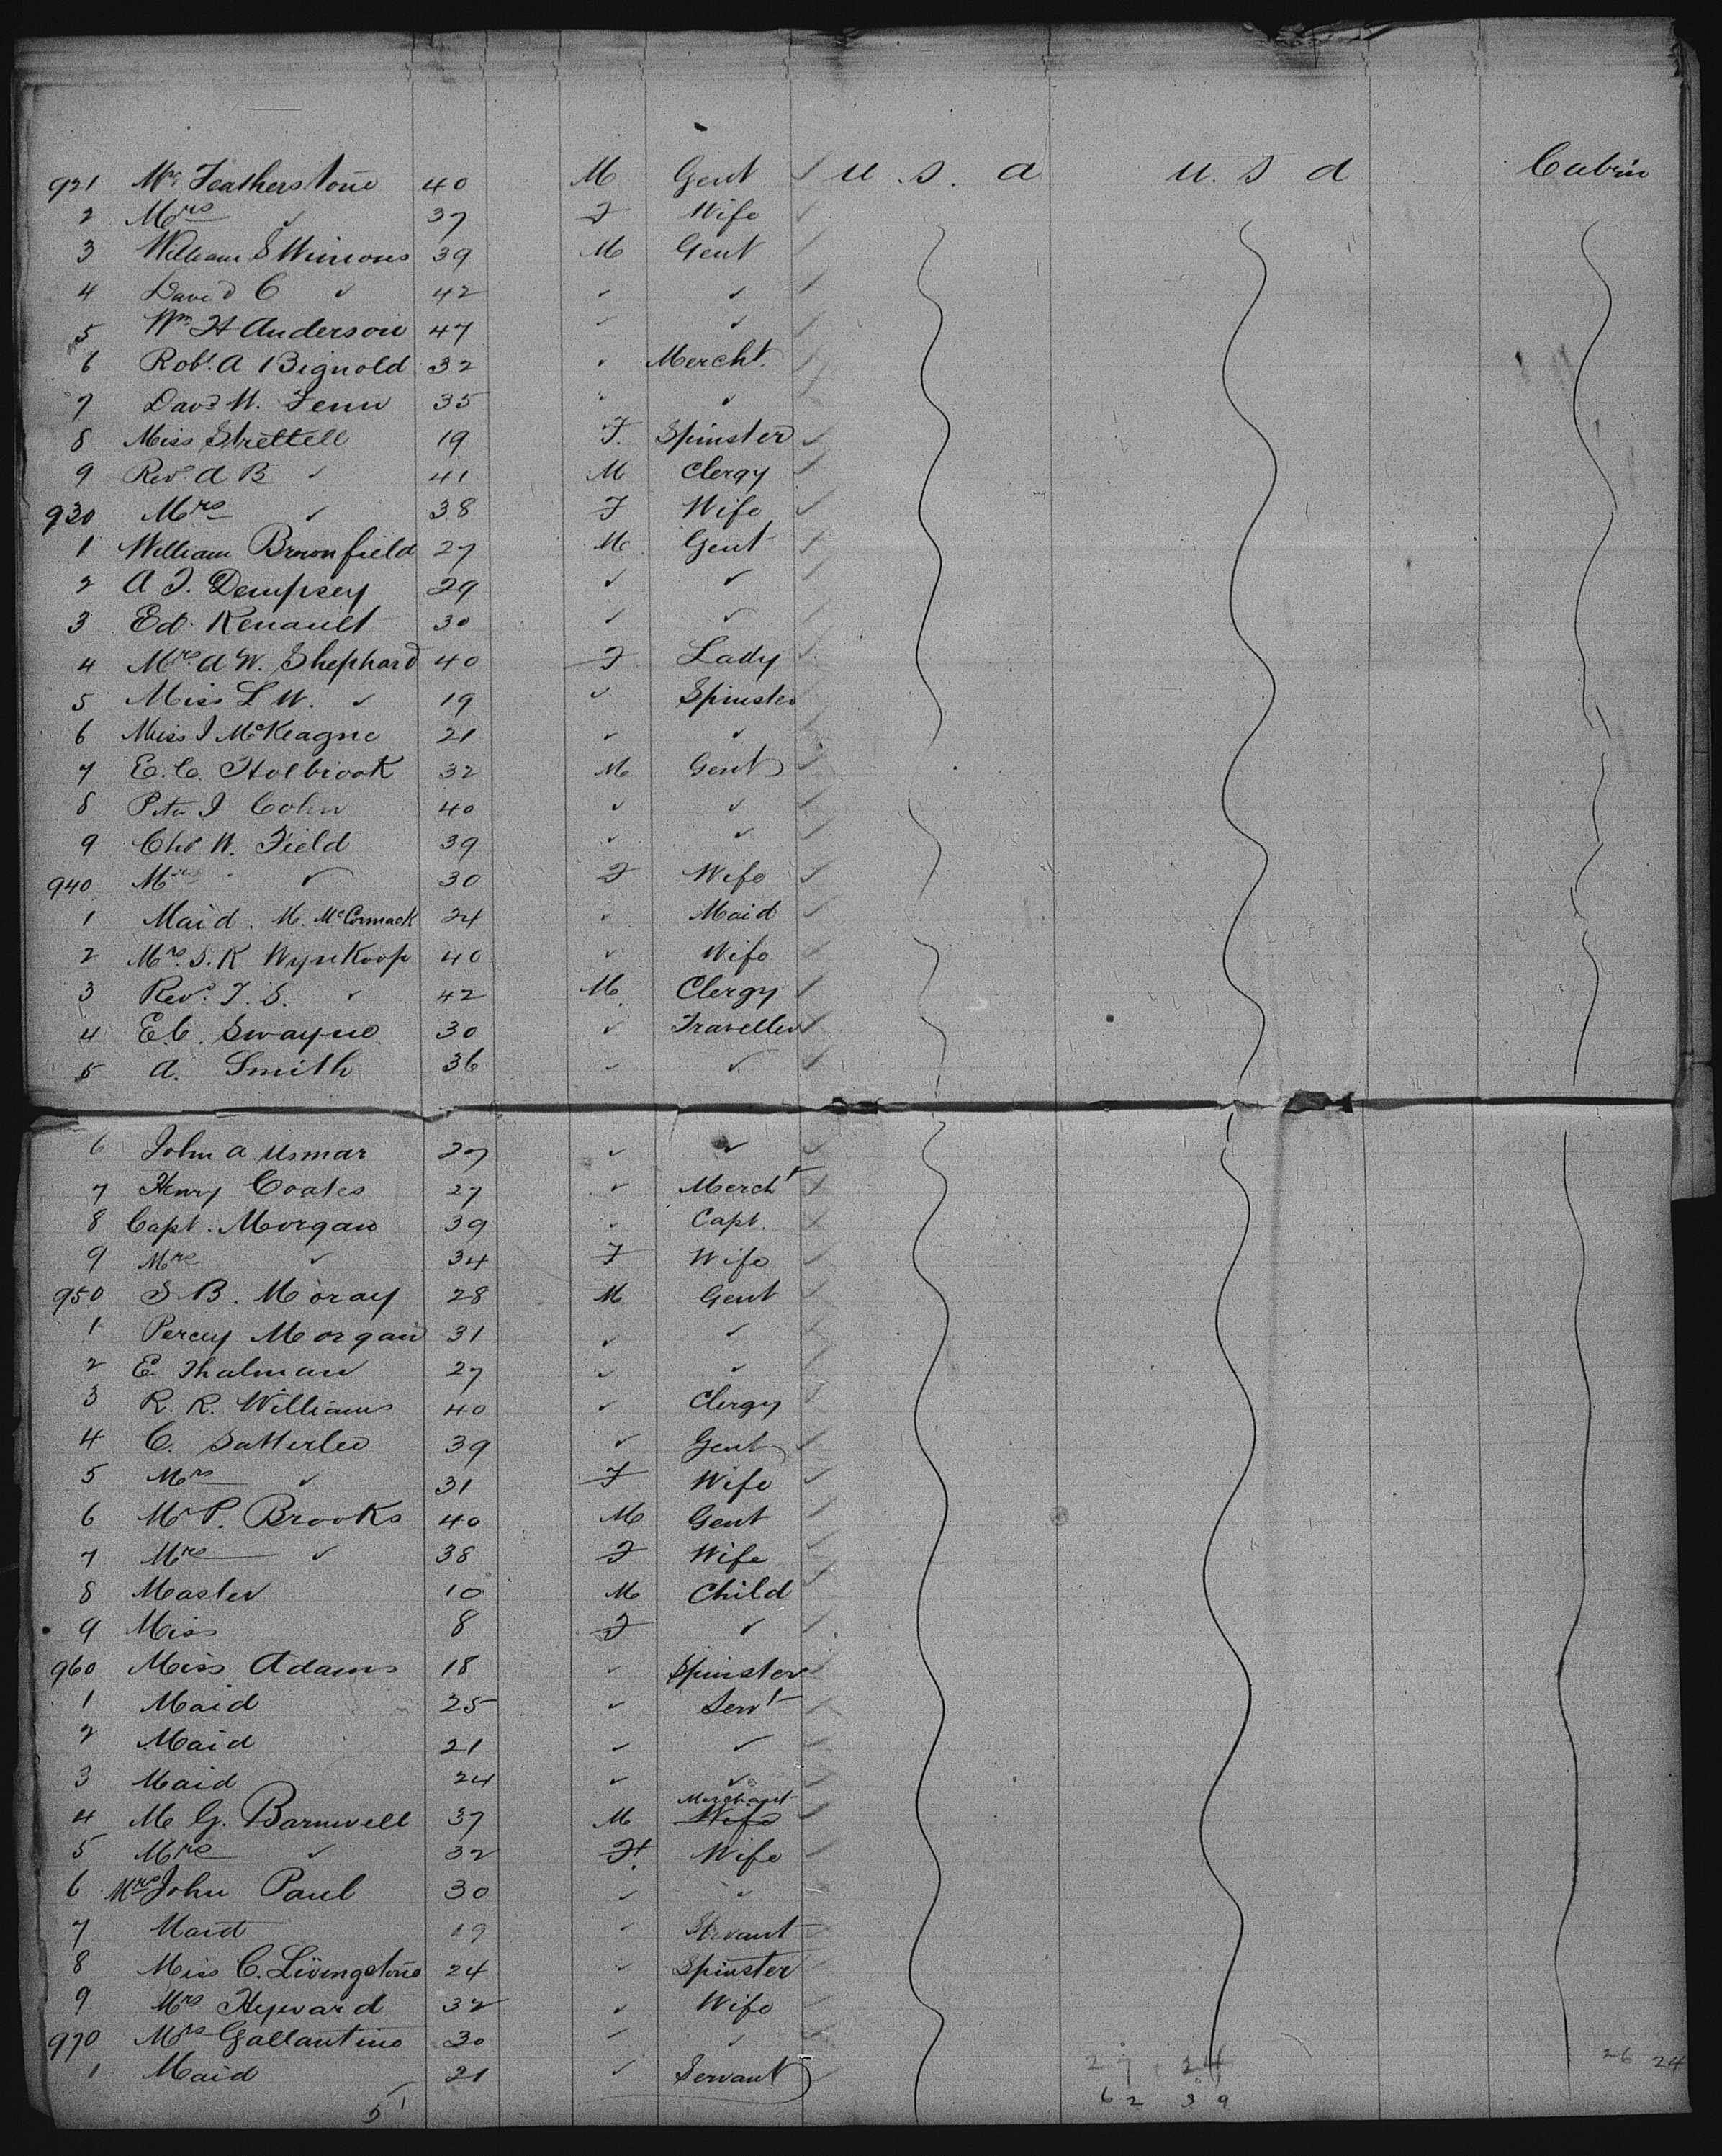 921 Mr Featherstone 40 M Gent ✓ U.S.A U.S.A Cabin
2 Mrs ✓ 37 F Wife ✓
3 William S Winions 39 M Gent ✓
4 David C ✓ 42 ✓ ✓ ✓
5 Wm H Anderson 47 ✓ ✓ ✓
6 Robt. A Bignold 32 ✓ Mercht. ✓
7 Davd W. Fenn 35 ✓ ✓ ✓
8 Miss Strettell 19 F. Spinster ✓
9 Revd A B ✓ 41 M Clergy ✓
930 Mrs ✓ 38 F Wife ✓
1 William Brownfield 27 M Gent ✓
2 A J. Dempsey 29 ✓ ✓ ✓
3 Ed. Renault 30 ✓ ✓ ✓
4 Mrs A W. Shephard 40 F Lady ✓
5 Miss L W. ✓ 19 ✓ Spinster ✓
6 Miss J McKeagne 21 ✓ ✓ ✓
7 E. C. Holbrook 32 M Gent ✓
8 Peter J Cohn 40 ✓ ✓ ✓
9 Chs W. Field 39 ✓ ✓ ✓
940 Mrs ✓ 30 F Wife ✓
1 Maid. M. McCormack 24 ✓ Maid ✓
2 Mrs. S. K Wynkoop 40 ✓ Wife ✓
3 Revd. T. S. ✓ 42 M. Clergy ✓
4 E. C. Swayne 30 ✓ Traveller ✓
5 A. Smith 36 ✓ ✓ ✓
6 John A Usmar 27 ✓ ✓ ✓
7 Henry Coates 27 ✓ Mercht ✓
8 Capt. Morgan 39 ✓ Capt. ✓
9 Mrs ✓ 34 F Wife ✓
950 S B. Moray 28 M Gent ✓
1 Percy Morgan 31 ✓ ✓ ✓
2 E Thalman 27 ✓ ✓ ✓
3 R. R. Williams 40 ✓ Clergy ✓
4 C. Satterlee 39 ✓ Gent ✓
5 Mrs ✓ 31 F Wife ✓
6 Mr P. Brooks 40 M Gent ✓
7 Mrs ✓ 38 F Wife ✓
8 Master 10 M Child ✓
9 Miss 8 F ✓ ✓
960 Miss Adams 18 ✓ Spinster ✓
1 Maid 25 ✓ Servt ✓
2 Maid 21 ✓ ✓ ✓
3 Maid 24 ✓ ✓ ✓
4 M G. Barnwell 37 M Merchant Wife ✓
5 Mrs ✓ 32 F. Wife ✓
6 Mrs John Paul 30 ✓ ✓ ✓
7 Maid 19 ✓ Servant ✓
8 Miss C. Livingstone 24 ✓ Spinster ✓
9 Mrs Heyward 32 ✓ Wife ✓
970 Mrs Gallantine 30 ✓ ✓ ✓
1 Maid 21 ✓ Servant ✓
27 24 26 24
51 62 39